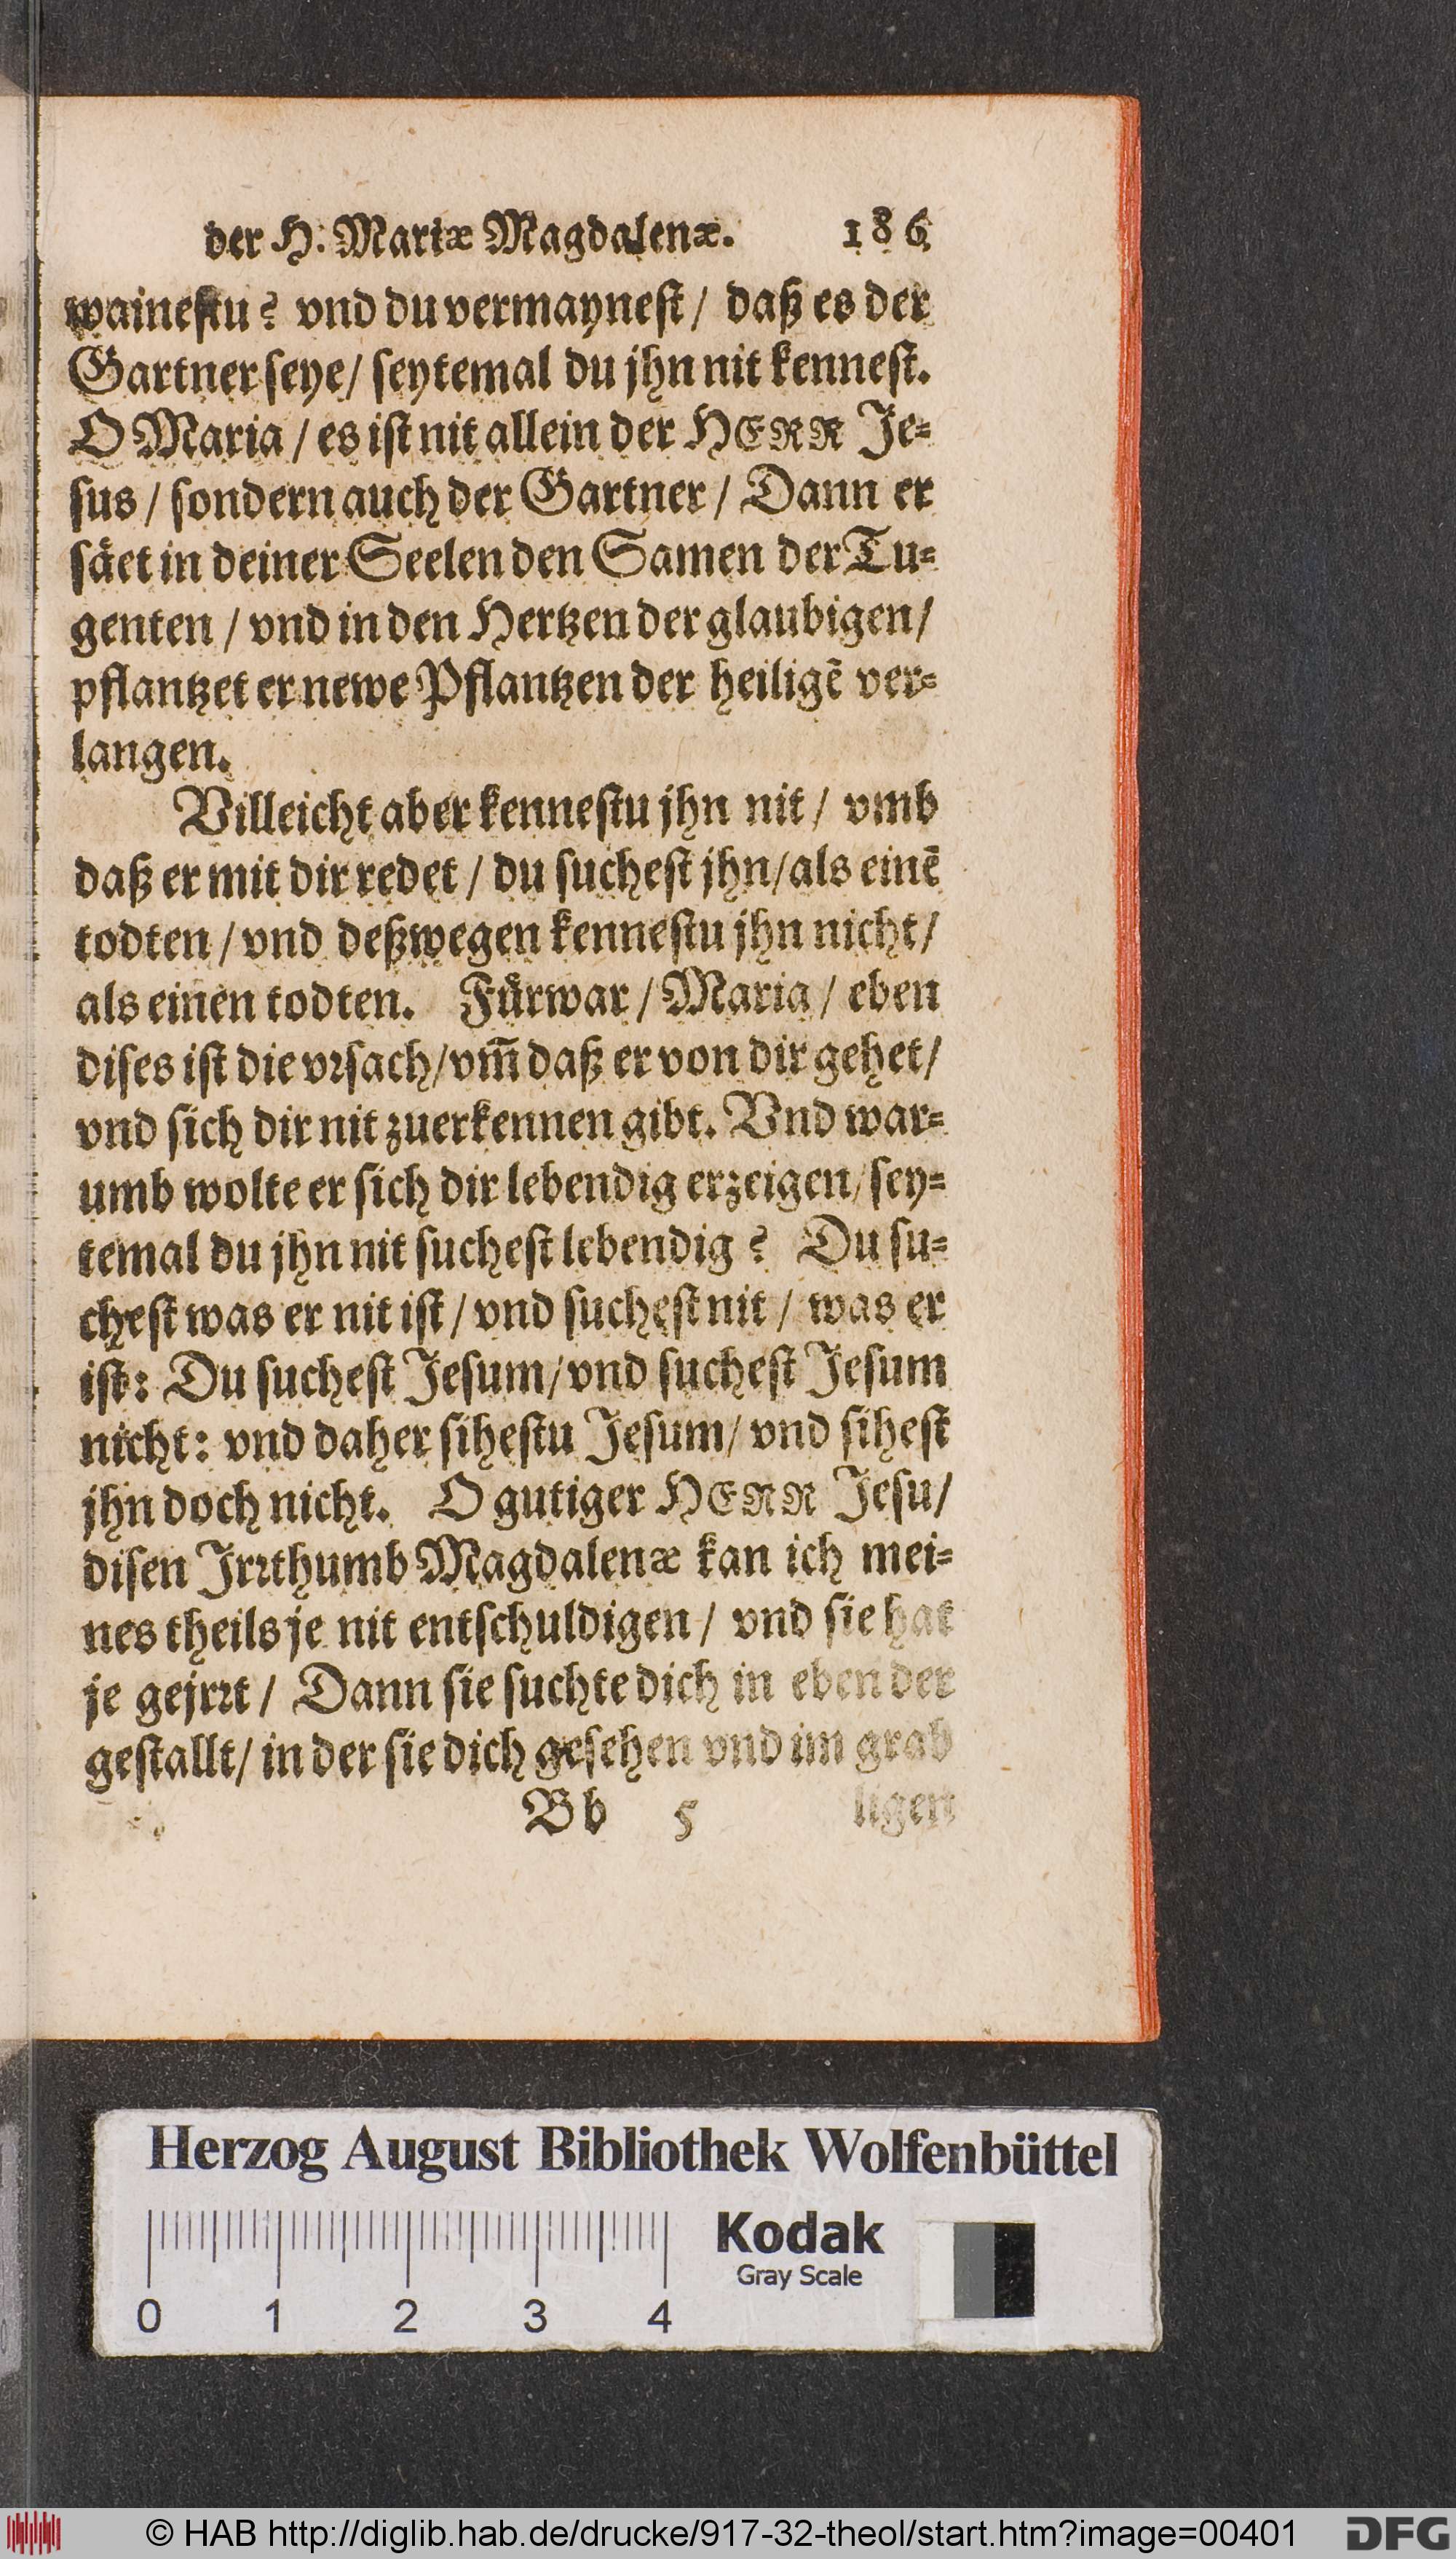 der H. Mariæ Magdalenæ. 186
wainestu? vnd du vermaynest / daß es der
Gartner seye / seytemal du jhn nit kennest.
O Maria / es ist nit allein der HERR Je=
sus / sondern auch der Gartner / Dann er
säet in deiner Seelen den Samen der Tu=
genten / vnd in den Hertzen der glaubigen /
pflantzet er newe Pflantzen der heiligē ver=
langen.
Villeicht aber kennestu jhn nit / vmb
daß er mit dir redet / du suchest jhn / als einē
todten / vnd deßwegen kennestu jhn nicht /
als einen todten. Fürwar / Maria / eben
dises ist die vrsach / vm̃ daß er von dir gehet /
vnd sich dir nit zuerkennen gibt. Vnd war=
umb wolte er sich dir lebendig erzeigen / sey=
temal du jhn nit suchest lebendig? Du su=
chest was er nit ist / vnd suchest nit / was er
ist: Du suchest Jesum / vnd suchest Jesum
nicht: vnd daher sihestu Jesum / vnd sihest
jhn doch nicht. O gutiger HERR Jesu /
disen Irrthumb Magdalenæ kan ich mei=
nes theils je nit entschuldigen / vnd sie hat
je gejrrt / Dann sie suchte dich in eben der
gestallt / in der sie dich gesehen vnd im grab
Bb 5 ligen
Herzog August Bibliothek Wolfenbüttel
Kodak
Gray Scale
0 1 2 3 4
© HAB http://diglib.hab.de/drucke/917-32-theol/start.htm?image=00401
DFG